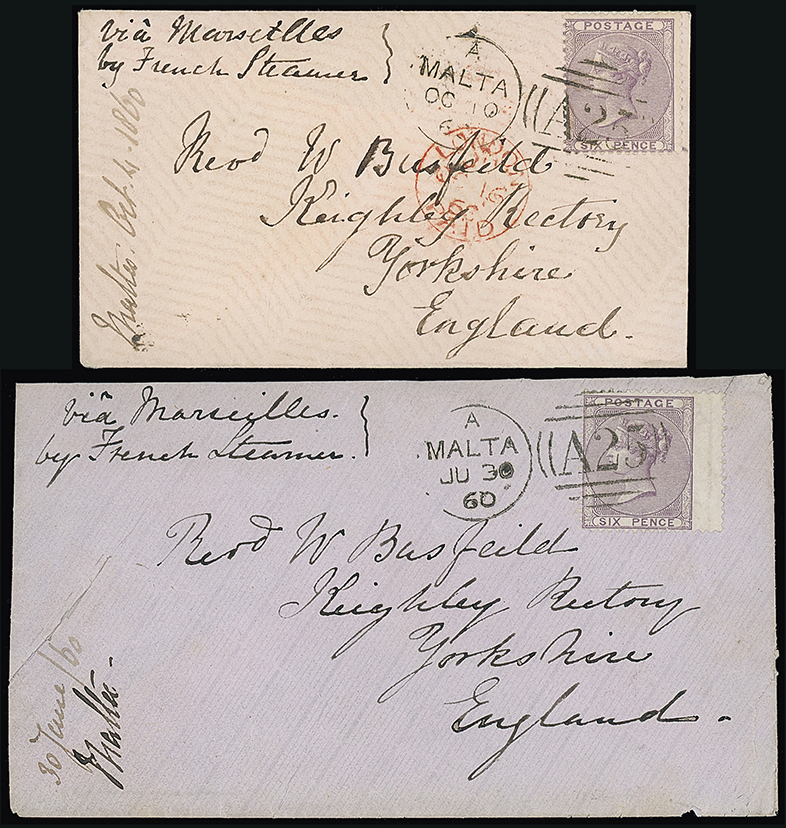 viâ Marseilles
by French Steamer
A
MALTA
OC 10
6
A25
POSTAGE
SIX PENCE
Revd W Busfeild
Keighley Rectory
Yorkshire
England.
LONDON
16
60
PAID
Malta. Oct. 4. 1860
viâ Marseilles.
by French Steamer.
A
MALTA
JU 30
60
A25
POSTAGE
SIX PENCE
Revd W Busfeild
Keighley Rectory
Yorkshire
England.
30 June/60
Malta.